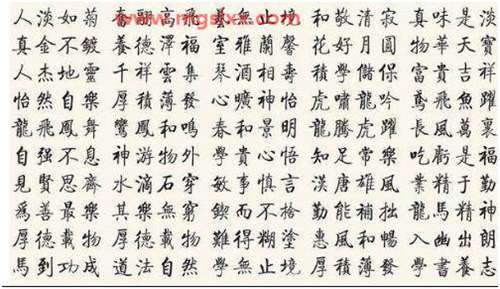 www.mgsfxx.com
人淡如菊 高飛 無止境 和敬清寂 真味是淡
真金不鍍 養德澤福 室雅蘭馨 花好月圓 物華天寶
人杰地靈 千祥雲集 琴酒相壽 積學儲保 富貴吉祥
怡然自樂 厚積薄發 心曠神怡 虎嘯龍吟 鳶飛魚躍
龍飛鳳舞 鸞鳳和鳴 春和景明 龍騰虎躍 長風萬裏
自强不息 神游物外 學貴心悟 知足常樂 吃虧是福
見賢思齊 水滴石穿 敏事慎言 漢唐雄風 業精于勤
爲善最樂 其樂無窮 鍥而不捨 勤能補拙 龍馬精神
厚德載物 厚德載物 難得糊塗 惠風和暢 入幽出朗
馬到功成 道法自然 學無止境 厚積薄發 學書養志